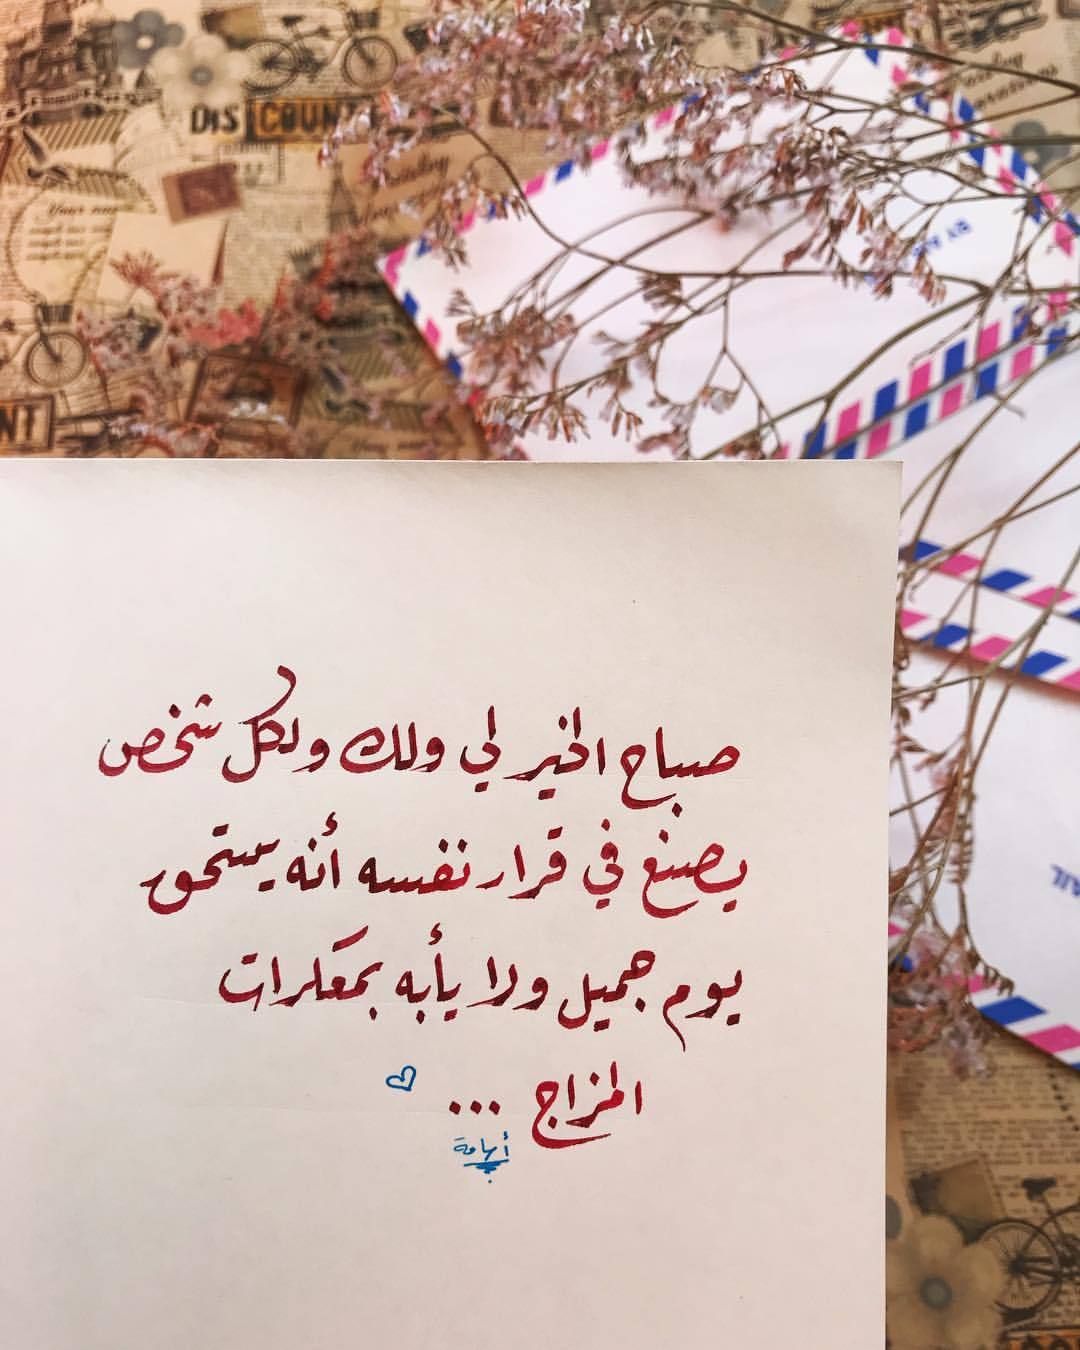 DISCOUNT
BY AIR
صباح الخير لي ولك ولكل شخص
يصنع في قرار نفسه أنه يستحق
يوم جميل ولا يأبه بمعكرات
المزاج ...